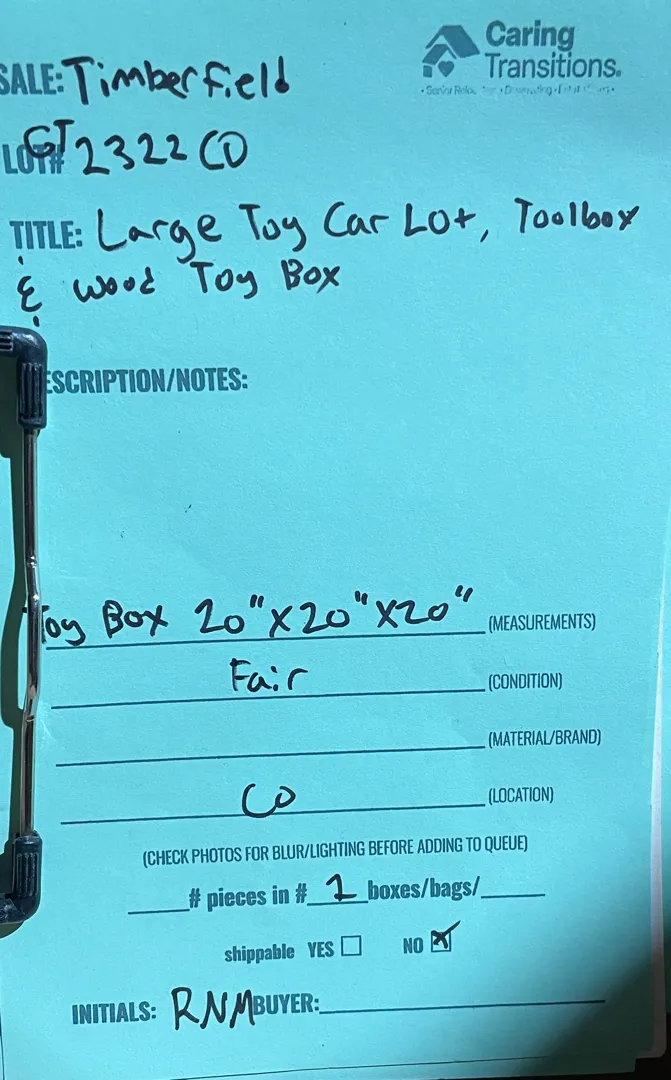 Caring
Transitions.
SALE: Timberfield
LOT# GT2322 CO
TITLE: Large Toy Car Lot, Toolbox
& Wood Toy Box
ESCRIPTION/NOTES:
Toy Box 20"X20"X20" (MEASUREMENTS)
Fair (CONDITION)
(MATERIAL/BRAND)
CO (LOCATION)
(CHECK PHOTOS FOR BLUR/LIGHTING BEFORE ADDING TO QUEUE)
# pieces in # 1 boxes/bags/
shippable YES NO X
INITIALS: RNM BUYER: